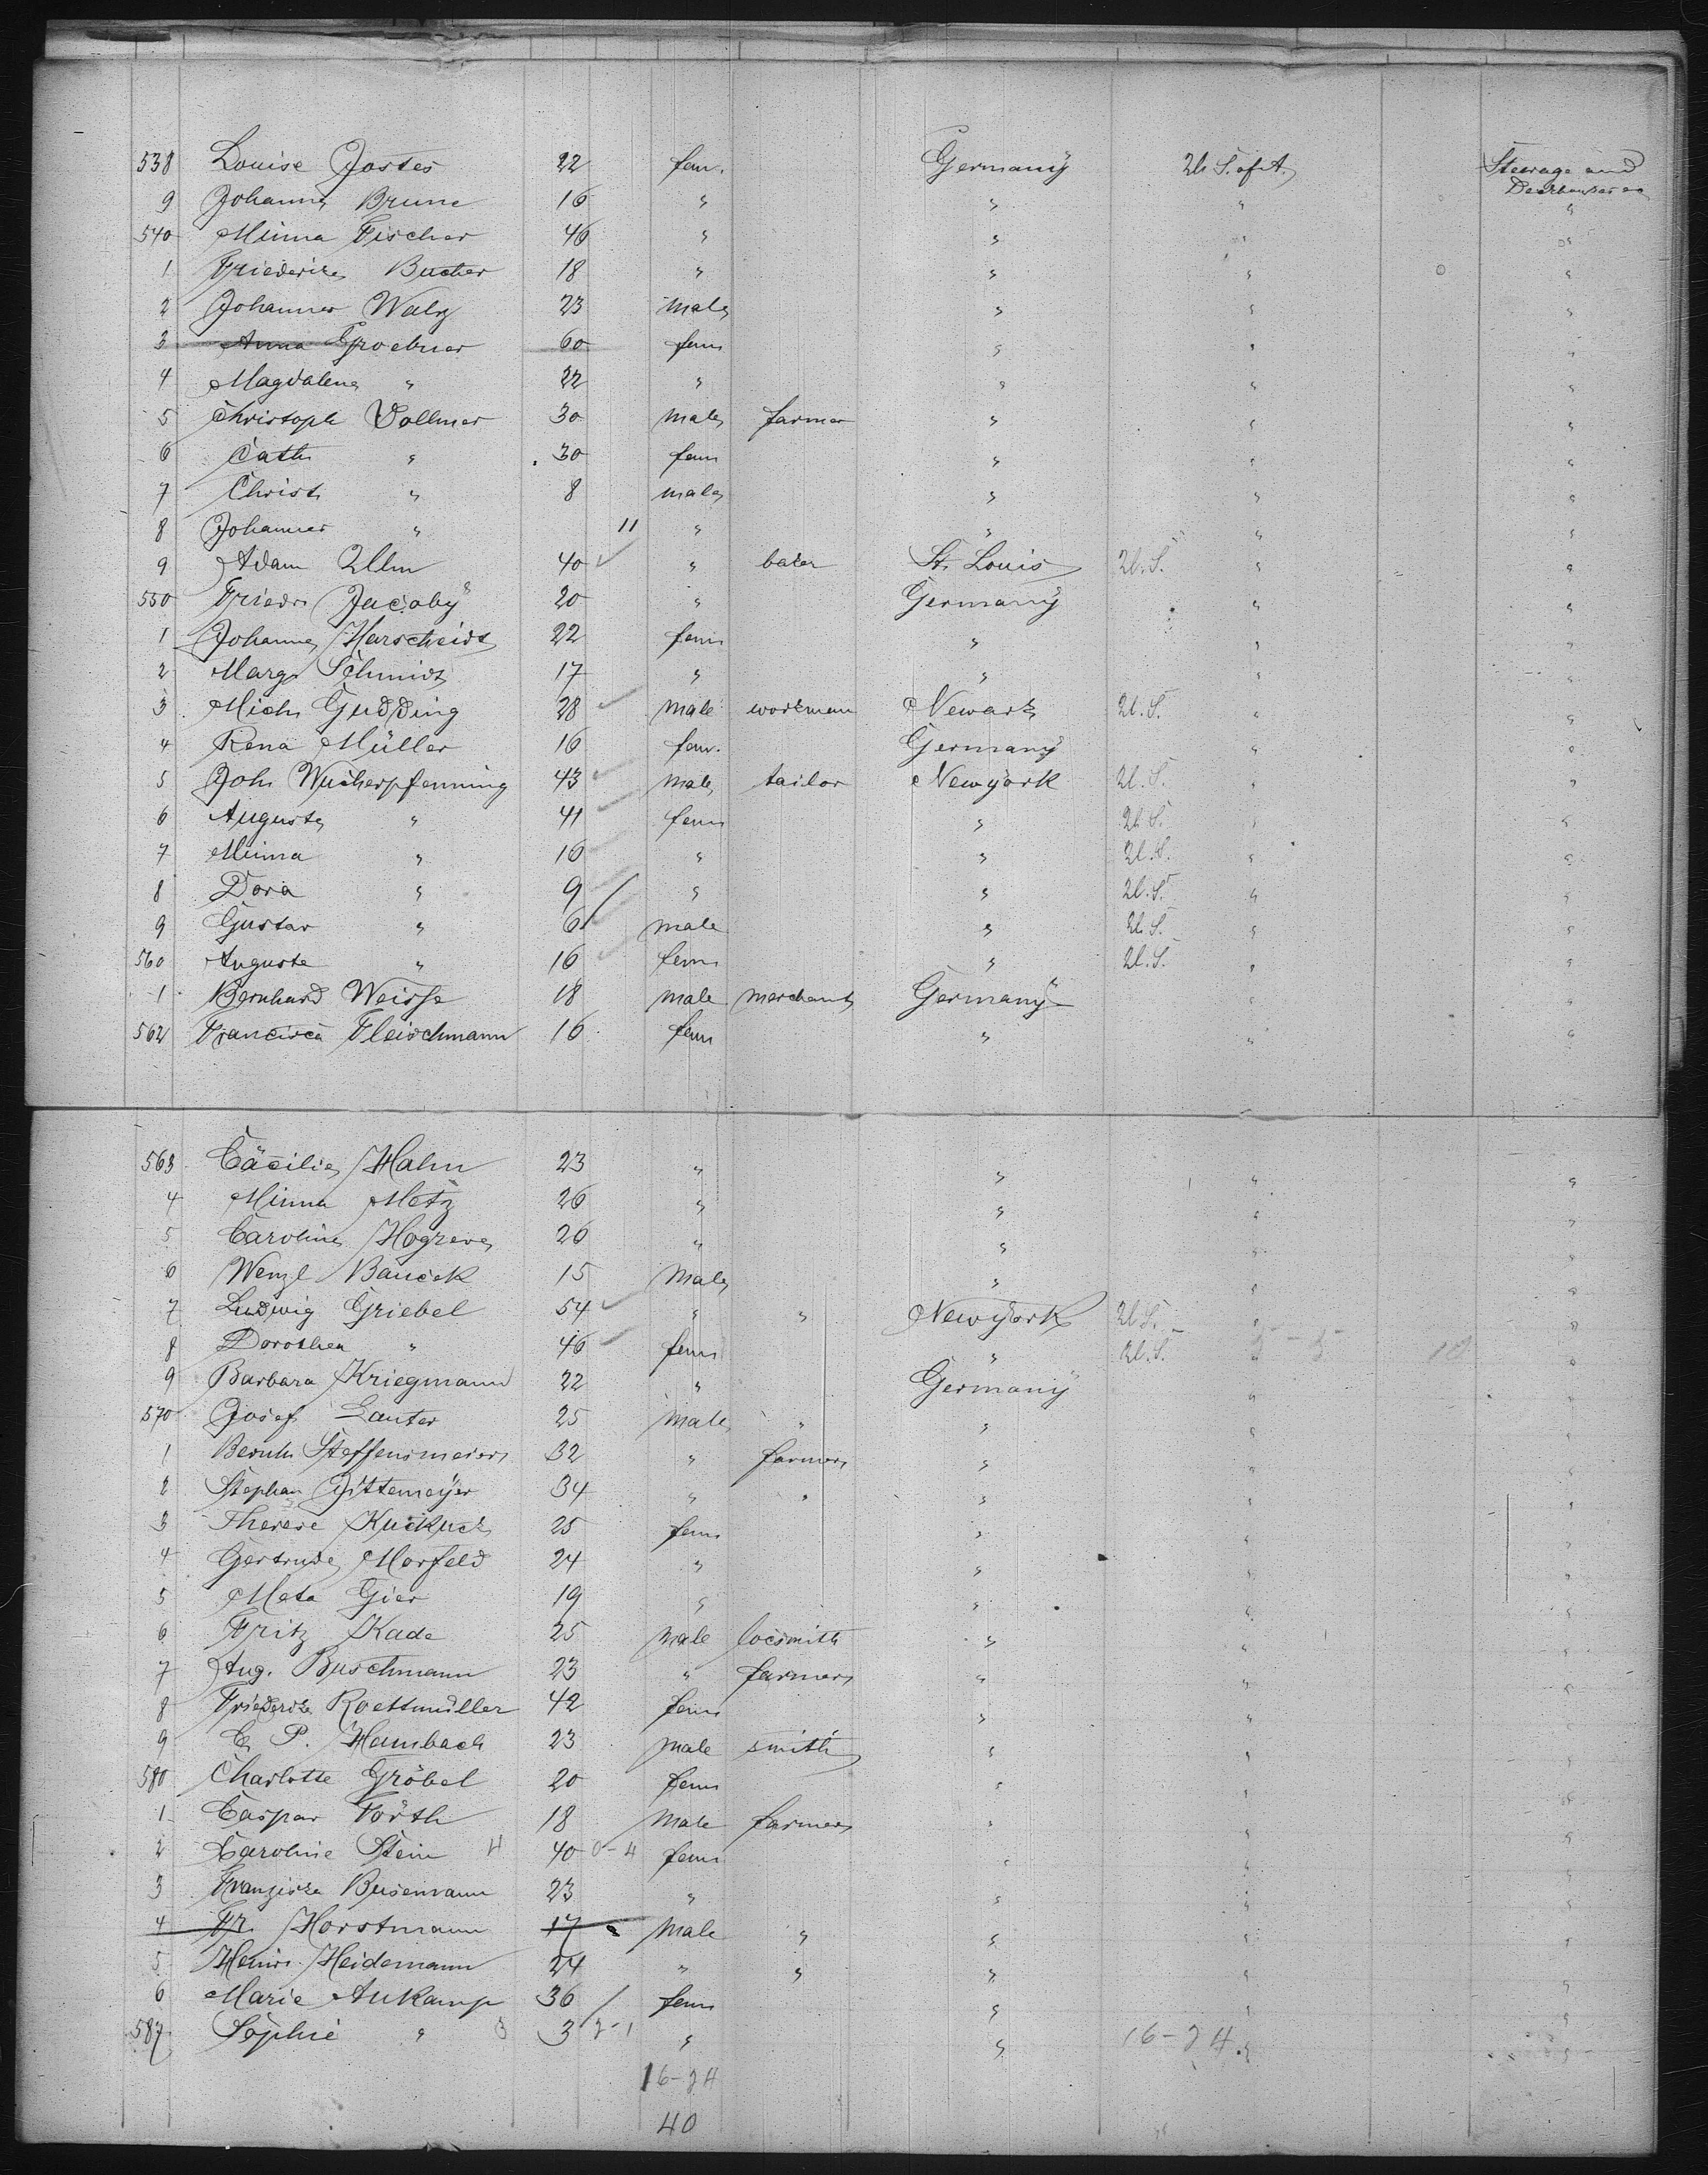 538 Louise Jostes 22 fem. Germany U. S. of A. Steerage and
9 Johanne Brune 16 " " " "
540 Minna Fischer 46 " " " "
1 Friederike Bucher 18 " " " "
2 Johannes Walz 23 male " " "
3 Anna Groebner 60 fem " " "
4 Magdalena " 22 " " " "
5 Christoph Vollmer 30 male farmer " " "
6 Cath " 30 fem " " "
7 Christ " 8 male " " "
8 Johannes " 11 " " " "
9 Adam Ullm 40 " baker St. Louis U. S. " "
550 Friedr Jacoby 20 " Germany " "
1 Johanne Harscheidt 22 fem " " "
2 Marg. Schmidt 17 " " " "
3 Mich Gudding 28 male workman Newark U. S. " "
4 Rena Müller 16 fem. Germany " "
5 Joh Wucherpfenning 43 male tailor Newyork U. S. " "
6 Auguste " 41 fem " U. S. " "
7 Minna " 16 " " U. S. " "
8 Dora " 9 " " U. S. " "
9 Gustav " 6 male " U. S. " "
560 Auguste " 16 fem " U. S. " "
1 Bernhard Weisse 18 male merchant Germany " "
562 Francisca Fleischmann 16 fem " " "
563 Cäcilie Hahn 23 " " " "
4 Minna Metz 26 " " " "
5 Caroline Hogreve 26 " " " "
6 Wenzl 15 male " " "
7 Ludwig Griebel 54 " " Newyork U. S. " "
8 Dorothea " 46 fem " U. S. " "
9 Barbara Kriegmann 22 " Germany " "
570 Josef Lauter 25 male " " " "
1 Bernh Steffensmeier 32 " farmer " " "
2 Stephan 34 " " " " "
3 Therese Kuckuck 25 fem " " "
4 Gertrude Morfeld 24 " " " "
5 Meta Gier 19 " " " "
6 Fritz Kade 25 male locsmith " " "
7 Aug. Buschmann 23 " farmer " " "
8 Friederike Roettmüller 42 fem " " "
9 P. Hambach 23 male smith " " "
580 Charlotte Gröbel 20 fem " " "
1 Caspar Förth 18 male farmer " " "
2 Caroline Stein 4 40 0-4 fem " " "
3 Franziska Busemann 23 " " " "
4 Fr. Horstmann 17 male " " " "
5 Heinr. Heidemann 24 " " " " "
6 Marie Aukamp 36 fem " " "
587 Sophie " 3 3 2-1 " " 16-24 " "
16-24
40